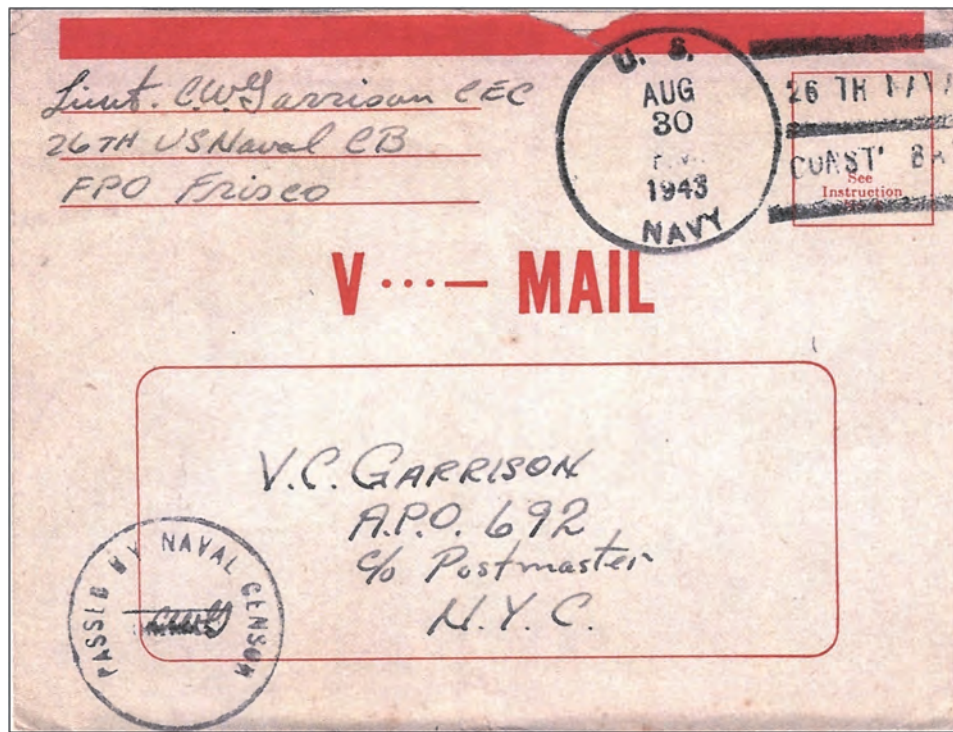 Lieut. C.W. Garrison CEC
26TH US Naval CB
FPO Frisco
U. S.
AUG
30
1943
NAVY
26 TH NAVA
CONST' BA
See
Instruction
V ···— MAIL
V.C. GARRISON
A.P.O. 692
c/o Postmaster
N.Y.C.
PASSED BY NAVAL CENSOR
CWG